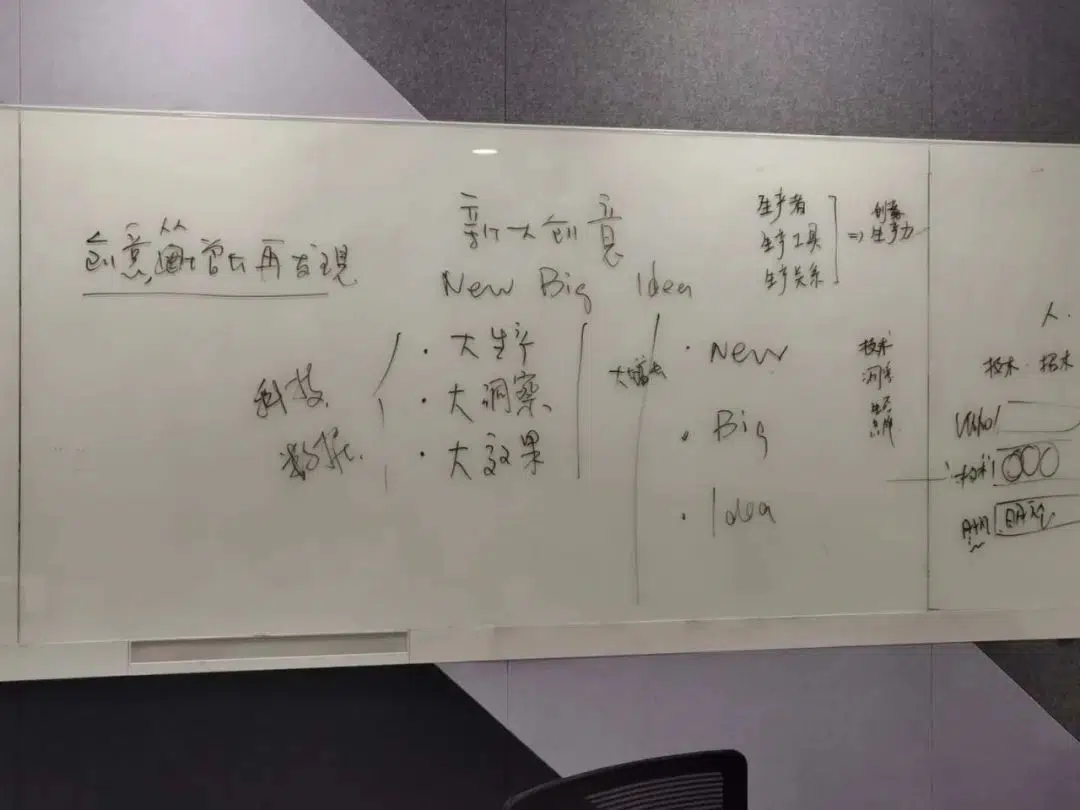 创意,营增长再发现
新大创意
New Big Idea
科技
数据
· 大生产
· 大洞察
· 大效果
· New
· Big
· Idea
生产者
生产工具
生产关系
=> 创意
生产力
技术
洞察
人.
技术 · 技术